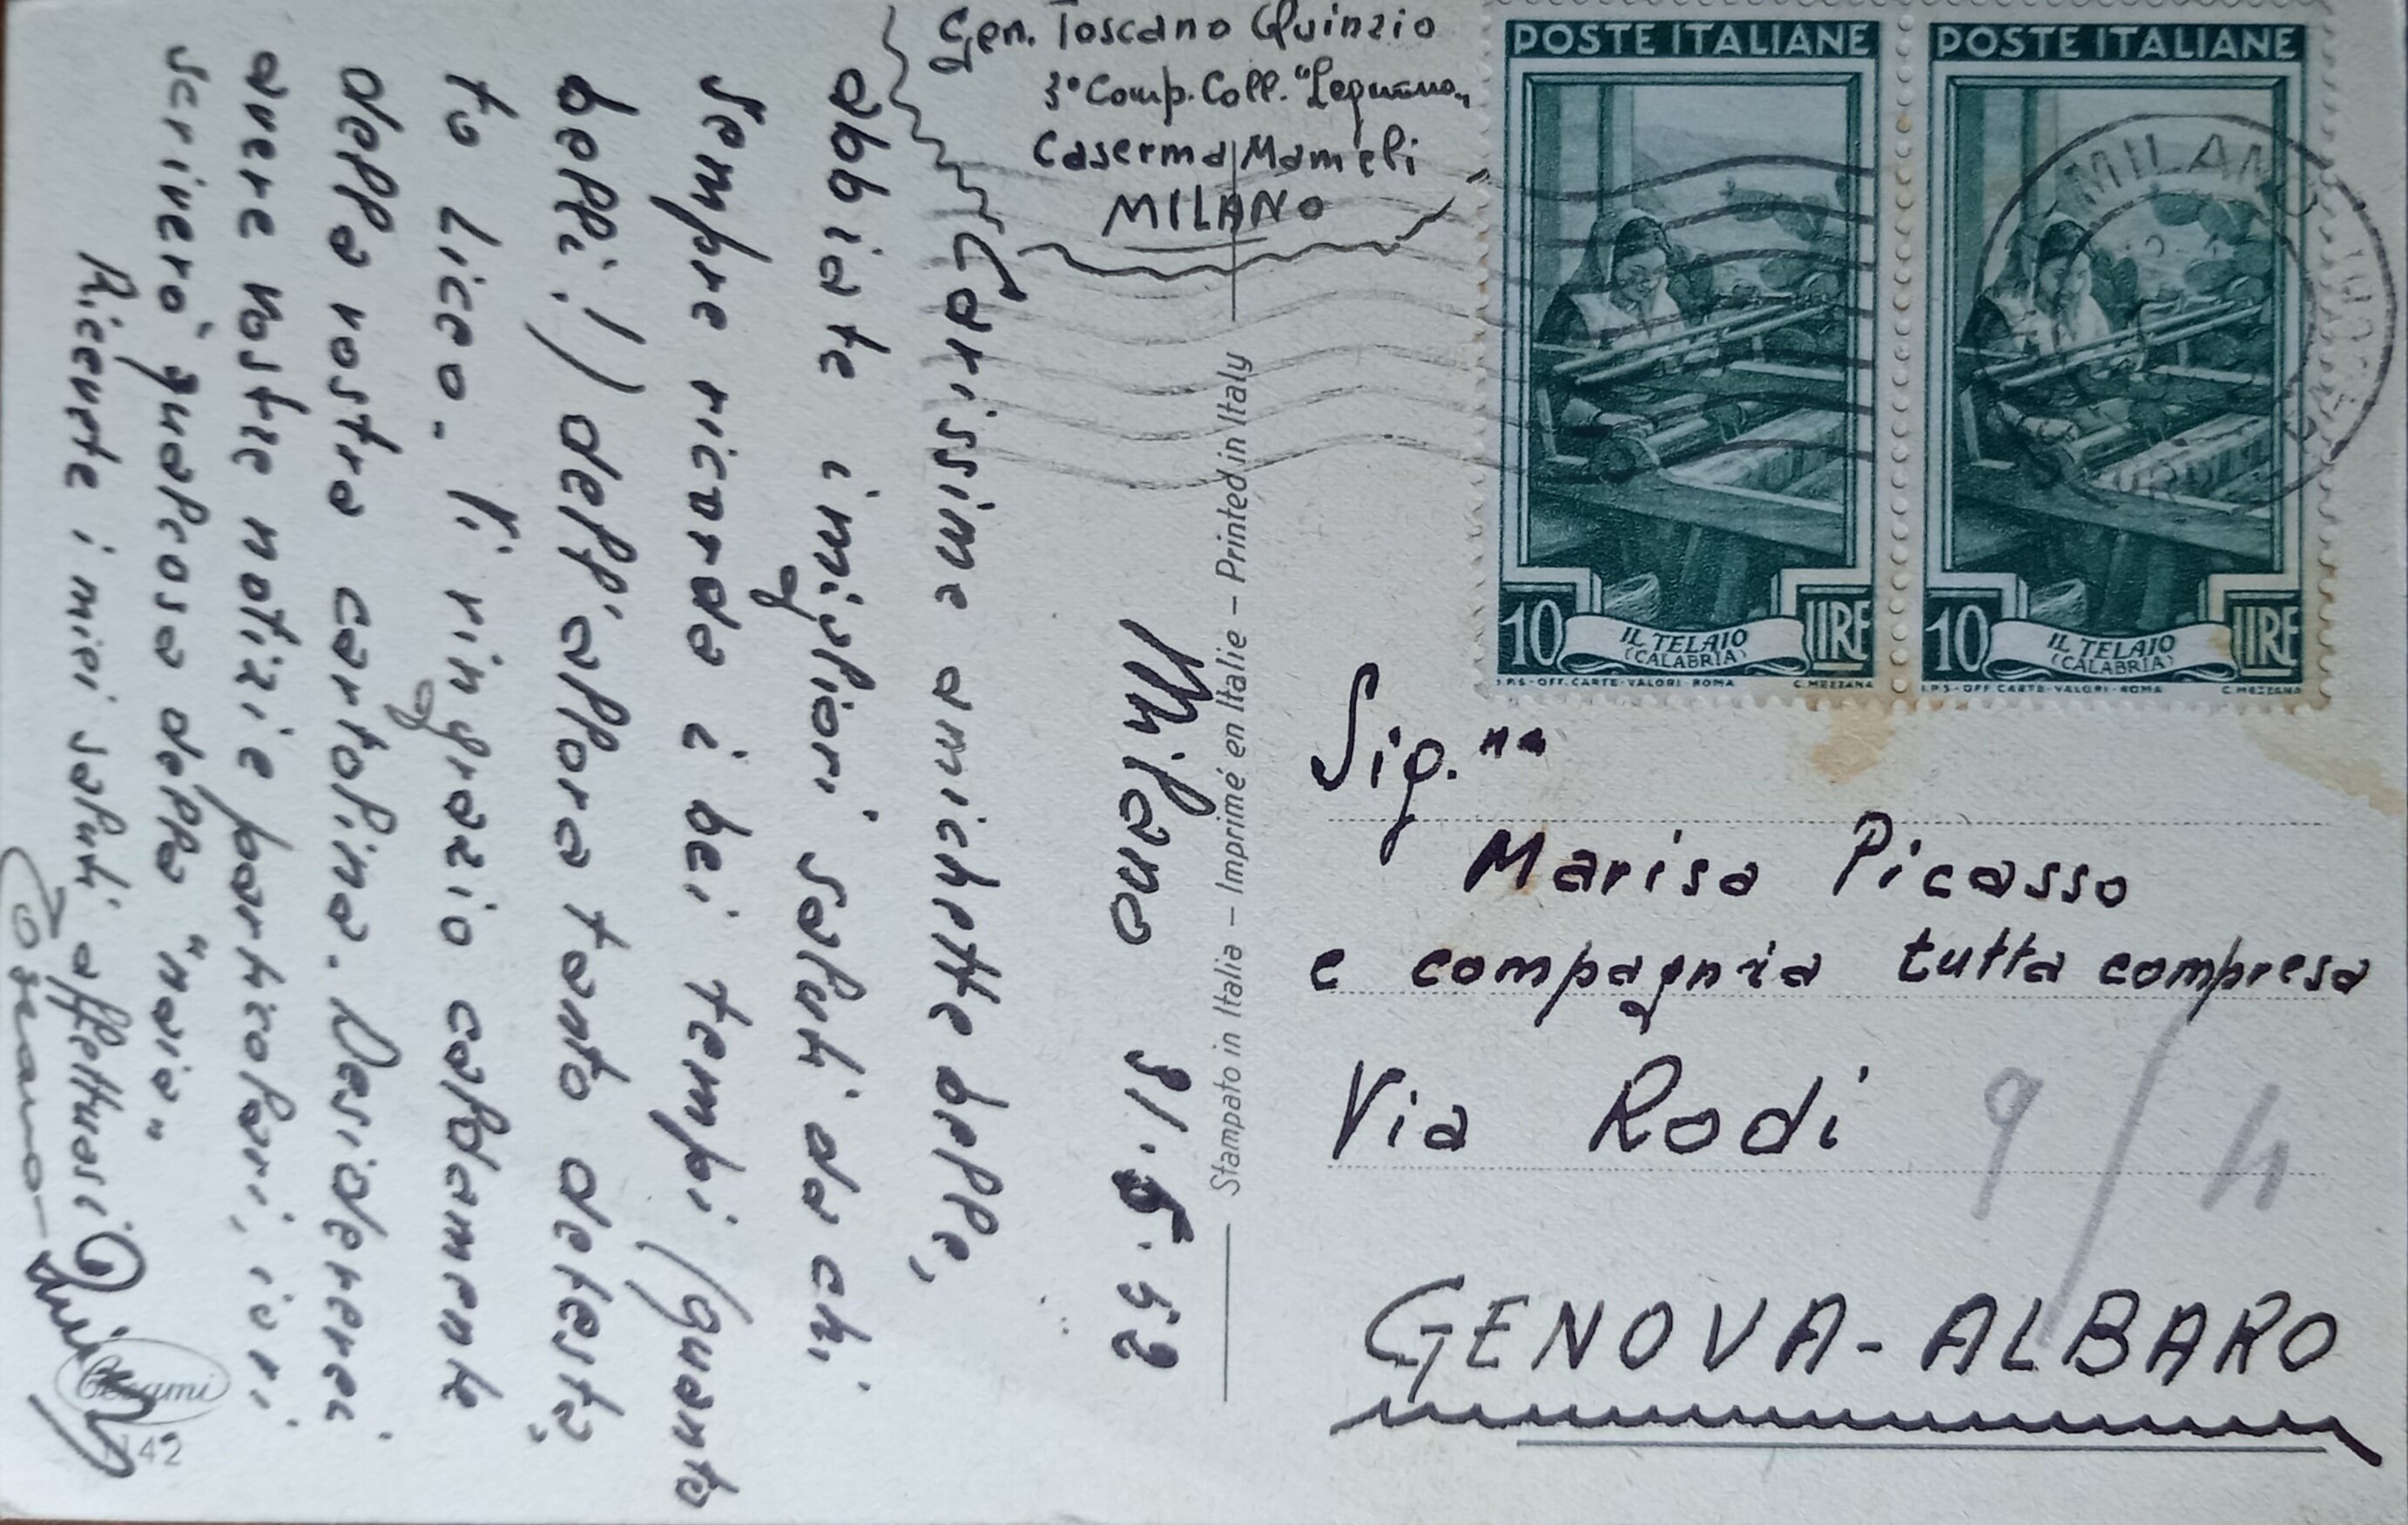 Gen. Toscano Quinzio
3° Comp. Coll. "Legnano"
Caserma Mameli
MILANO
Milano 51.5.52
Carissime amichette belle,
abbiate i migliori saluti da chi
sempre ricorda i bei tempi (quanto
belli!) dell'allora tanto detesta,
to liceo. Vi ringrazio caldamente
della vostra cartolina. Desidererei
avere vostre notizie particolari, io vi
scriverò qualcosa della "naia"
Ricevete i miei saluti affettuosi
Toscano Quinzio
Cesami
142
Stampato in Italia - Imprimé en Italie - Printed in Italy
POSTE ITALIANE
10 LIRE
IL TELAIO
(CALABRIA)
I.P.S-OFF. CARTE-VALORI-ROMA C. MEZZANA
POSTE ITALIANE
10 LIRE
IL TELAIO
(CALABRIA)
I.P.S-OFF. CARTE-VALORI-ROMA C. MEZZANA
MILANO
Sig.na
Marisa Picasso
e compagnia tutta compresa
Via Rodi 9/4
GENOVA-ALBARO